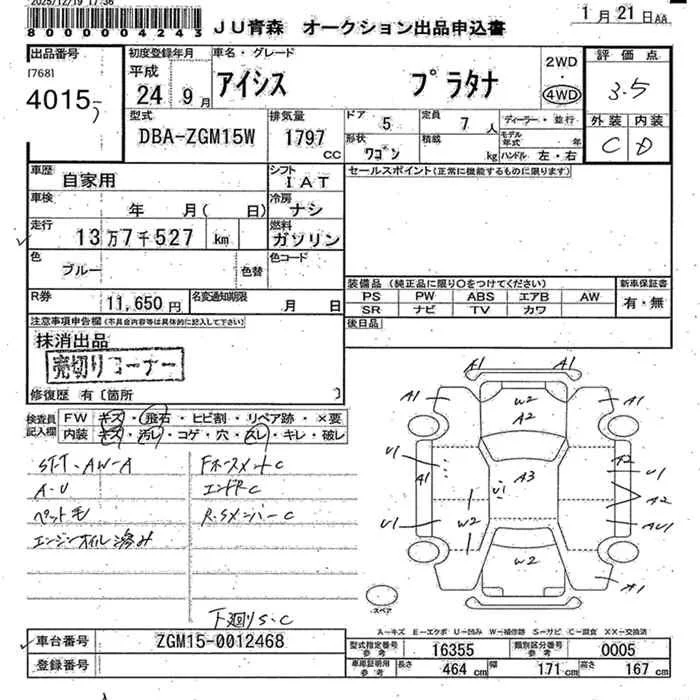 2025/12/19 17:36
8000004243
JU青森 オークション出品申込書
1月21日AA
出品番号
17681
4015
初度登録年月
平成
24 9月
車名・グレード
アイシス プラタナ
2WD
・
4WD
評価点
3.5
外装 内装
C D
型式
DBA-ZGM15W
排気量
1797
CC
ドア
5
定員
7人
ディーラー・並行
形状
ワゴン
積載
kg
モデル年式 年
ハンドル 左・右
車歴
自家用
シフト
IAT
セールスポイント(正常に機能するものに限ります)
車検
年 月( 日)
冷房
ナシ
走行
13万7千527 km
燃料
ガソリン
色
ブルー
色替
色コード
R券
11,650円
名変通知期限
月 日
装備品(純正品に限り○をつけてください)
PS PW ABS エアB AW
SR ナビ TV カワ
新車保証書
有・無
後日品
注意事項申告欄(不具合内容等は具体的に記入して下さい)
抹消出品
売切りコーナー
修復歴 有〔箇所 〕
検査員記入欄
FW キズ・飛石・ヒビ割・リペア跡・×要
内装 キズ・汚レ・コゲ・穴・スレ・キレ・破レ
ST-T・AW-A
A-U
ペット毛
エンジンオイル滲み
FホースメントC
エンドRC
R-SメンバーC
下廻りS・C
A1 A1
A1 W2 A1
A2
U1 A2
A1 A3 U1
U1 A2
U1 W2 AU1
W2
A1
スペア
A-キズ E-エクボ U-凹み W-補修跡 S-サビ C-腐食 XX-交換済
車台番号
ZGM15-0012468
登録番号
型式指定番号参考
16355
類別区分番号参考
0005
車庫証明用参考
長さ 464 cm 幅 171 cm 高さ 167 cm